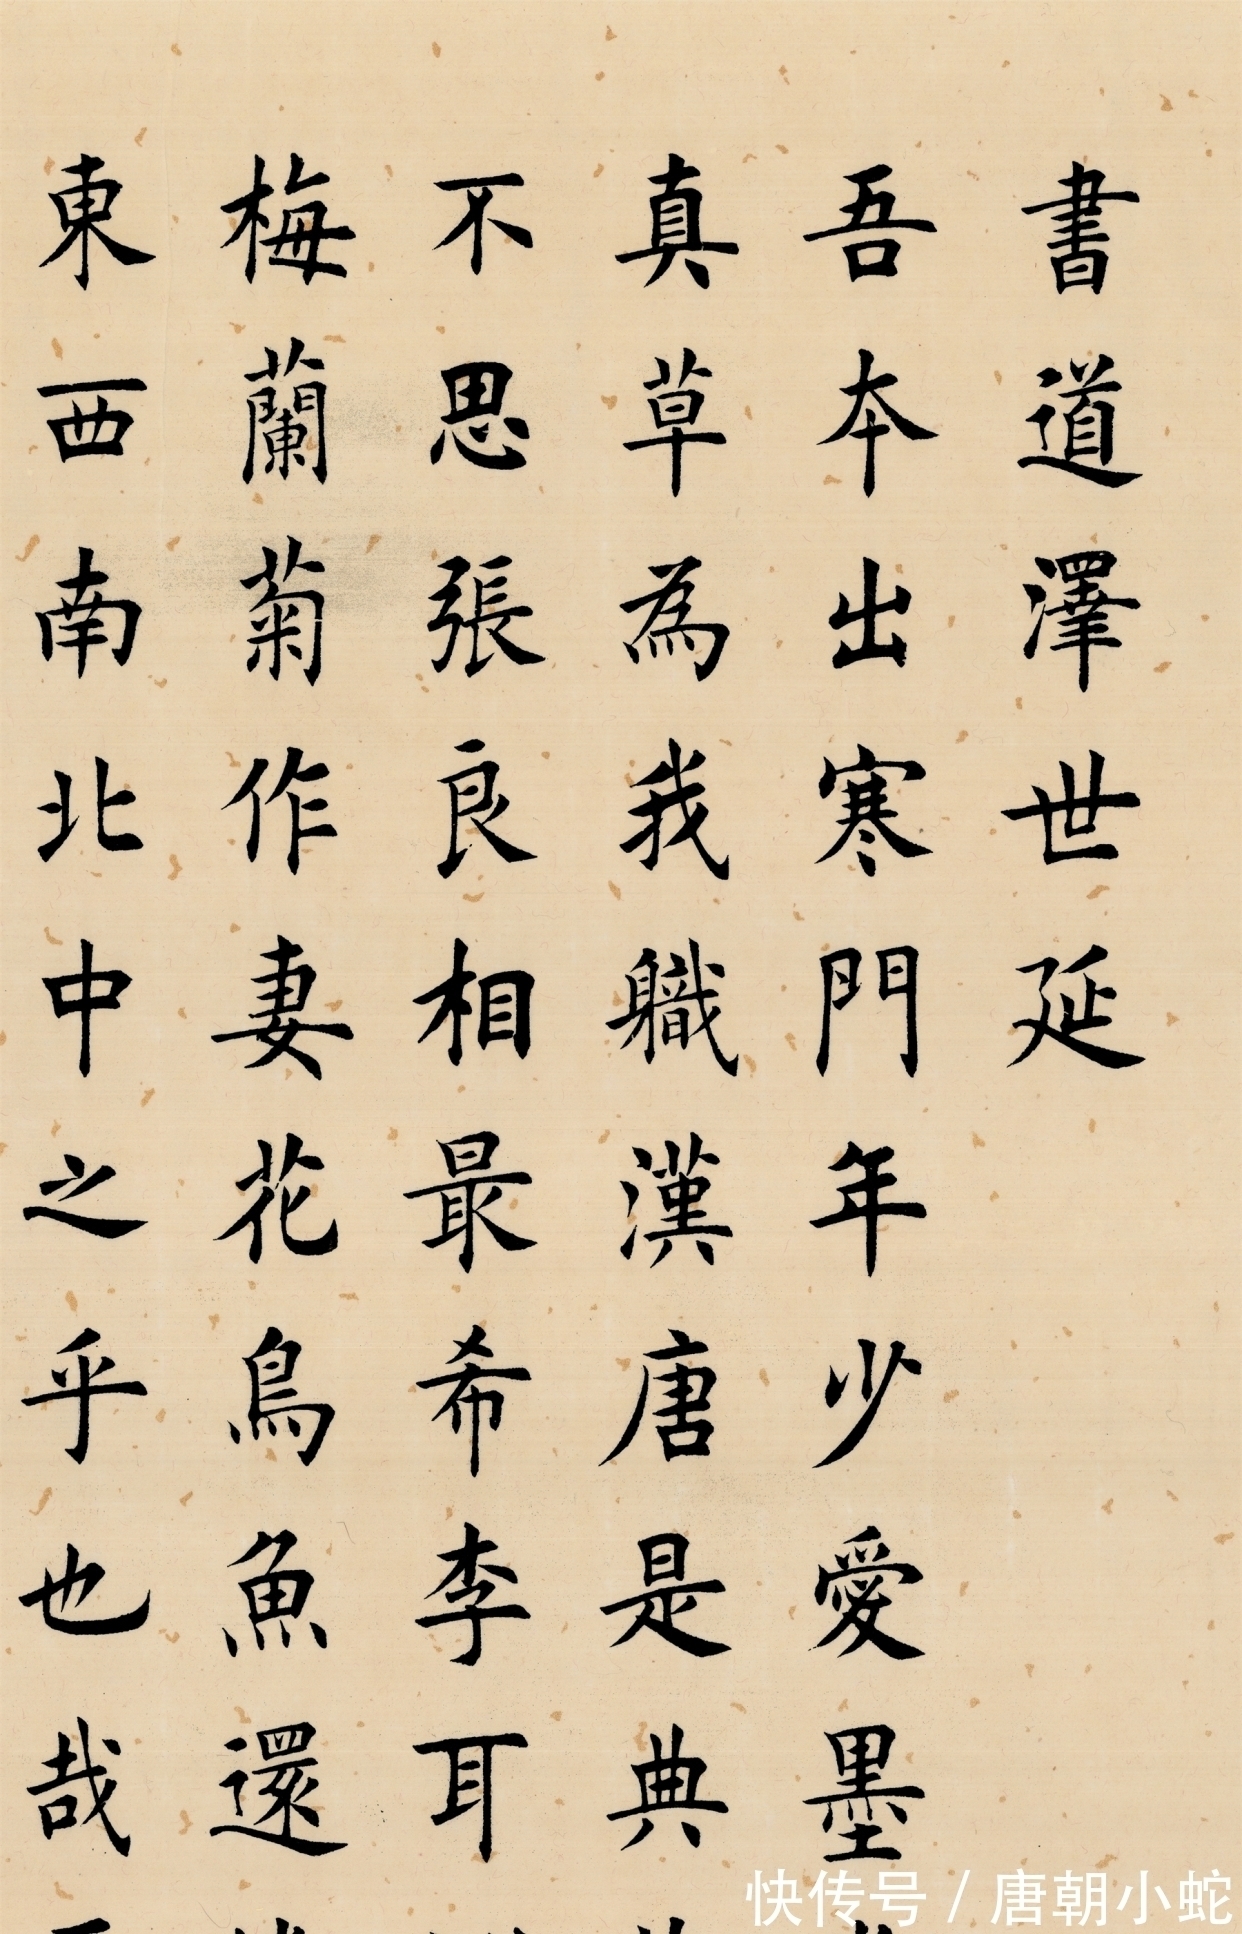 書道澤世延
吾本出寒門年少愛墨
真草為我職漢唐是典
不思張良相最希李耳
梅蘭菊作妻花鳥魚還
東西南北中之乎也哉
快传号 / 唐朝小蛇